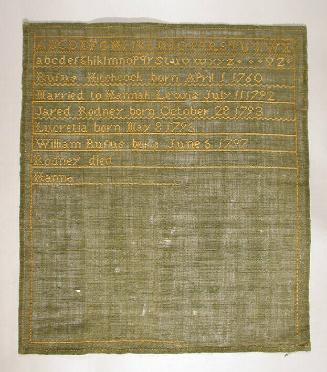 ABCDEFGHIKLMNOPQRSTUVWXYZ
abcdefghiklmnopqrstuvwxyz
Rufus Hitchcock born April 1 1760
Married to Hannah Lewis July 11 1792
Jared Rodney born October 28 1793
Lucretia born May 8 1796
William Rufus born June 6 1797
Rodney died
Hanna